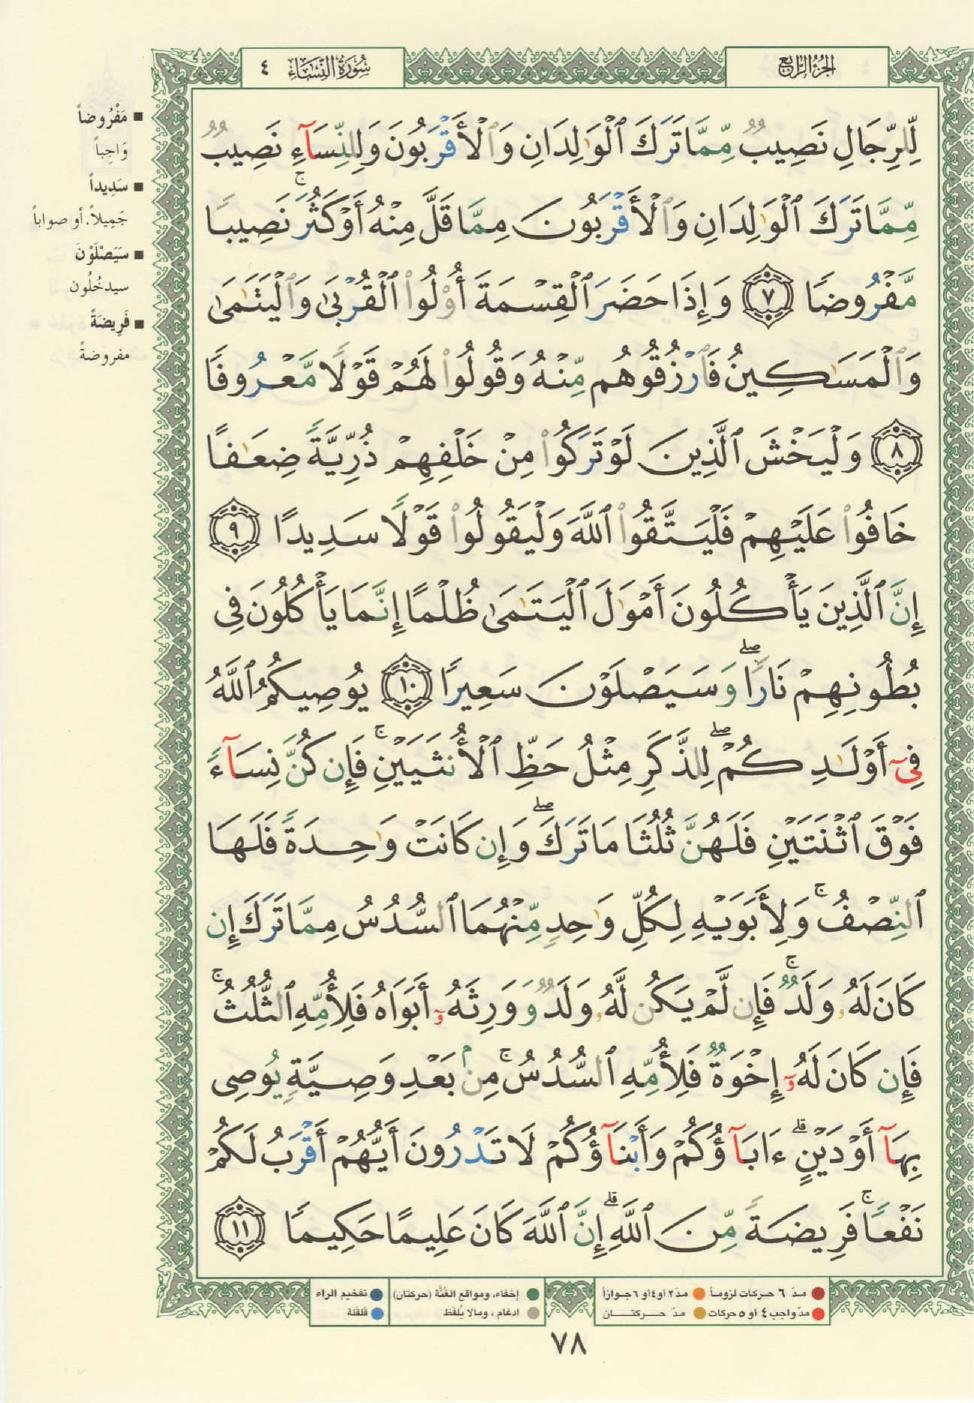 سُورَةُ النِّسَاءِ ٤
الجُزْءُ الرَّابِعُ
لِّلرِّجَالِ نَصِيبٌ مِّمَّا تَرَكَ ٱلْوَٰلِدَانِ وَٱلْأَقْرَبُونَ وَلِلنِّسَآءِ نَصِيبٌ
مِّمَّا تَرَكَ ٱلْوَٰلِدَانِ وَٱلْأَقْرَبُونَ مِمَّا قَلَّ مِنْهُ أَوْ كَثُرَ ۚ نَصِيبًا
مَّفْرُوضًا ٧ وَإِذَا حَضَرَ ٱلْقِسْمَةَ أُو۟لُوا۟ ٱلْقُرْبَىٰ وَٱلْيَتَٰمَىٰ
وَٱلْمَسَٰكِينُ فَٱرْزُقُوهُم مِّنْهُ وَقُولُوا۟ لَهُمْ قَوْلًا مَّعْرُوفًا
٨ وَلْيَخْشَ ٱلَّذِينَ لَوْ تَرَكُوا۟ مِنْ خَلْفِهِمْ ذُرِّيَّةً ضِعَٰفًا
خَافُوا۟ عَلَيْهِمْ فَلْيَتَّقُوا۟ ٱللَّهَ وَلْيَقُولُوا۟ قَوْلًا سَدِيدًا ٩
إِنَّ ٱلَّذِينَ يَأْكُلُونَ أَمْوَٰلَ ٱلْيَتَٰمَىٰ ظُلْمًا إِنَّمَا يَأْكُلُونَ فِى
بُطُونِهِمْ نَارًا ۖ وَسَيَصْلَوْنَ سَعِيرًا ١٠ يُوصِيكُمُ ٱللَّهُ
فِىٓ أَوْلَٰدِكُمْ ۖ لِلذَّكَرِ مِثْلُ حَظِّ ٱلْأُنثَيَيْنِ ۚ فَإِن كُنَّ نِسَآءً
فَوْقَ ٱثْنَتَيْنِ فَلَهُنَّ ثُلُثَا مَا تَرَكَ ۖ وَإِن كَانَتْ وَٰحِدَةً فَلَهَا
ٱلنِّصْفُ ۚ وَلِأَبَوَيْهِ لِكُلِّ وَٰحِدٍ مِّنْهُمَا ٱلسُّدُسُ مِمَّا تَرَكَ إِن
كَانَ لَهُۥ وَلَدٌ ۚ فَإِن لَّمْ يَكُن لَّهُۥ وَلَدٌ وَوَرِثَهُۥٓ أَبَوَاهُ فَلِأُمِّهِ ٱلثُّلُثُ ۚ
فَإِن كَانَ لَهُۥٓ إِخْوَةٌ فَلِأُمِّهِ ٱلسُّدُسُ ۚ مِنۢ بَعْدِ وَصِيَّةٍ يُوصِى
بِهَآ أَوْ دَيْنٍ ۗ ءَابَآؤُكُمْ وَأَبْنَآؤُكُمْ لَا تَدْرُونَ أَيُّهُمْ أَقْرَبُ لَكُمْ
نَفْعًا ۚ فَرِيضَةً مِّنَ ٱللَّهِ ۗ إِنَّ ٱللَّهَ كَانَ عَلِيمًا حَكِيمًا ١١
■ مَفْرُوضاً
وَاجِباً
■ سَدِيداً
جَمِيلاً. أو صواباً
■ سَيَصْلَوْنَ
سيدخُلُون
■ فَرِيضَةً
مفروضةً
مدّ ٦ حركات لزوماً
مدّ ٢ أو ٤ أو ٦ جوازاً
مدّ واجب ٤ أو ٥ حركات
مدّ حـركتــان
إخفاء، ومواقع الغُنَّة (حركتان)
ادغام، ومالا يُلفظ
تفخيم الراء
قلقلة
٧٨